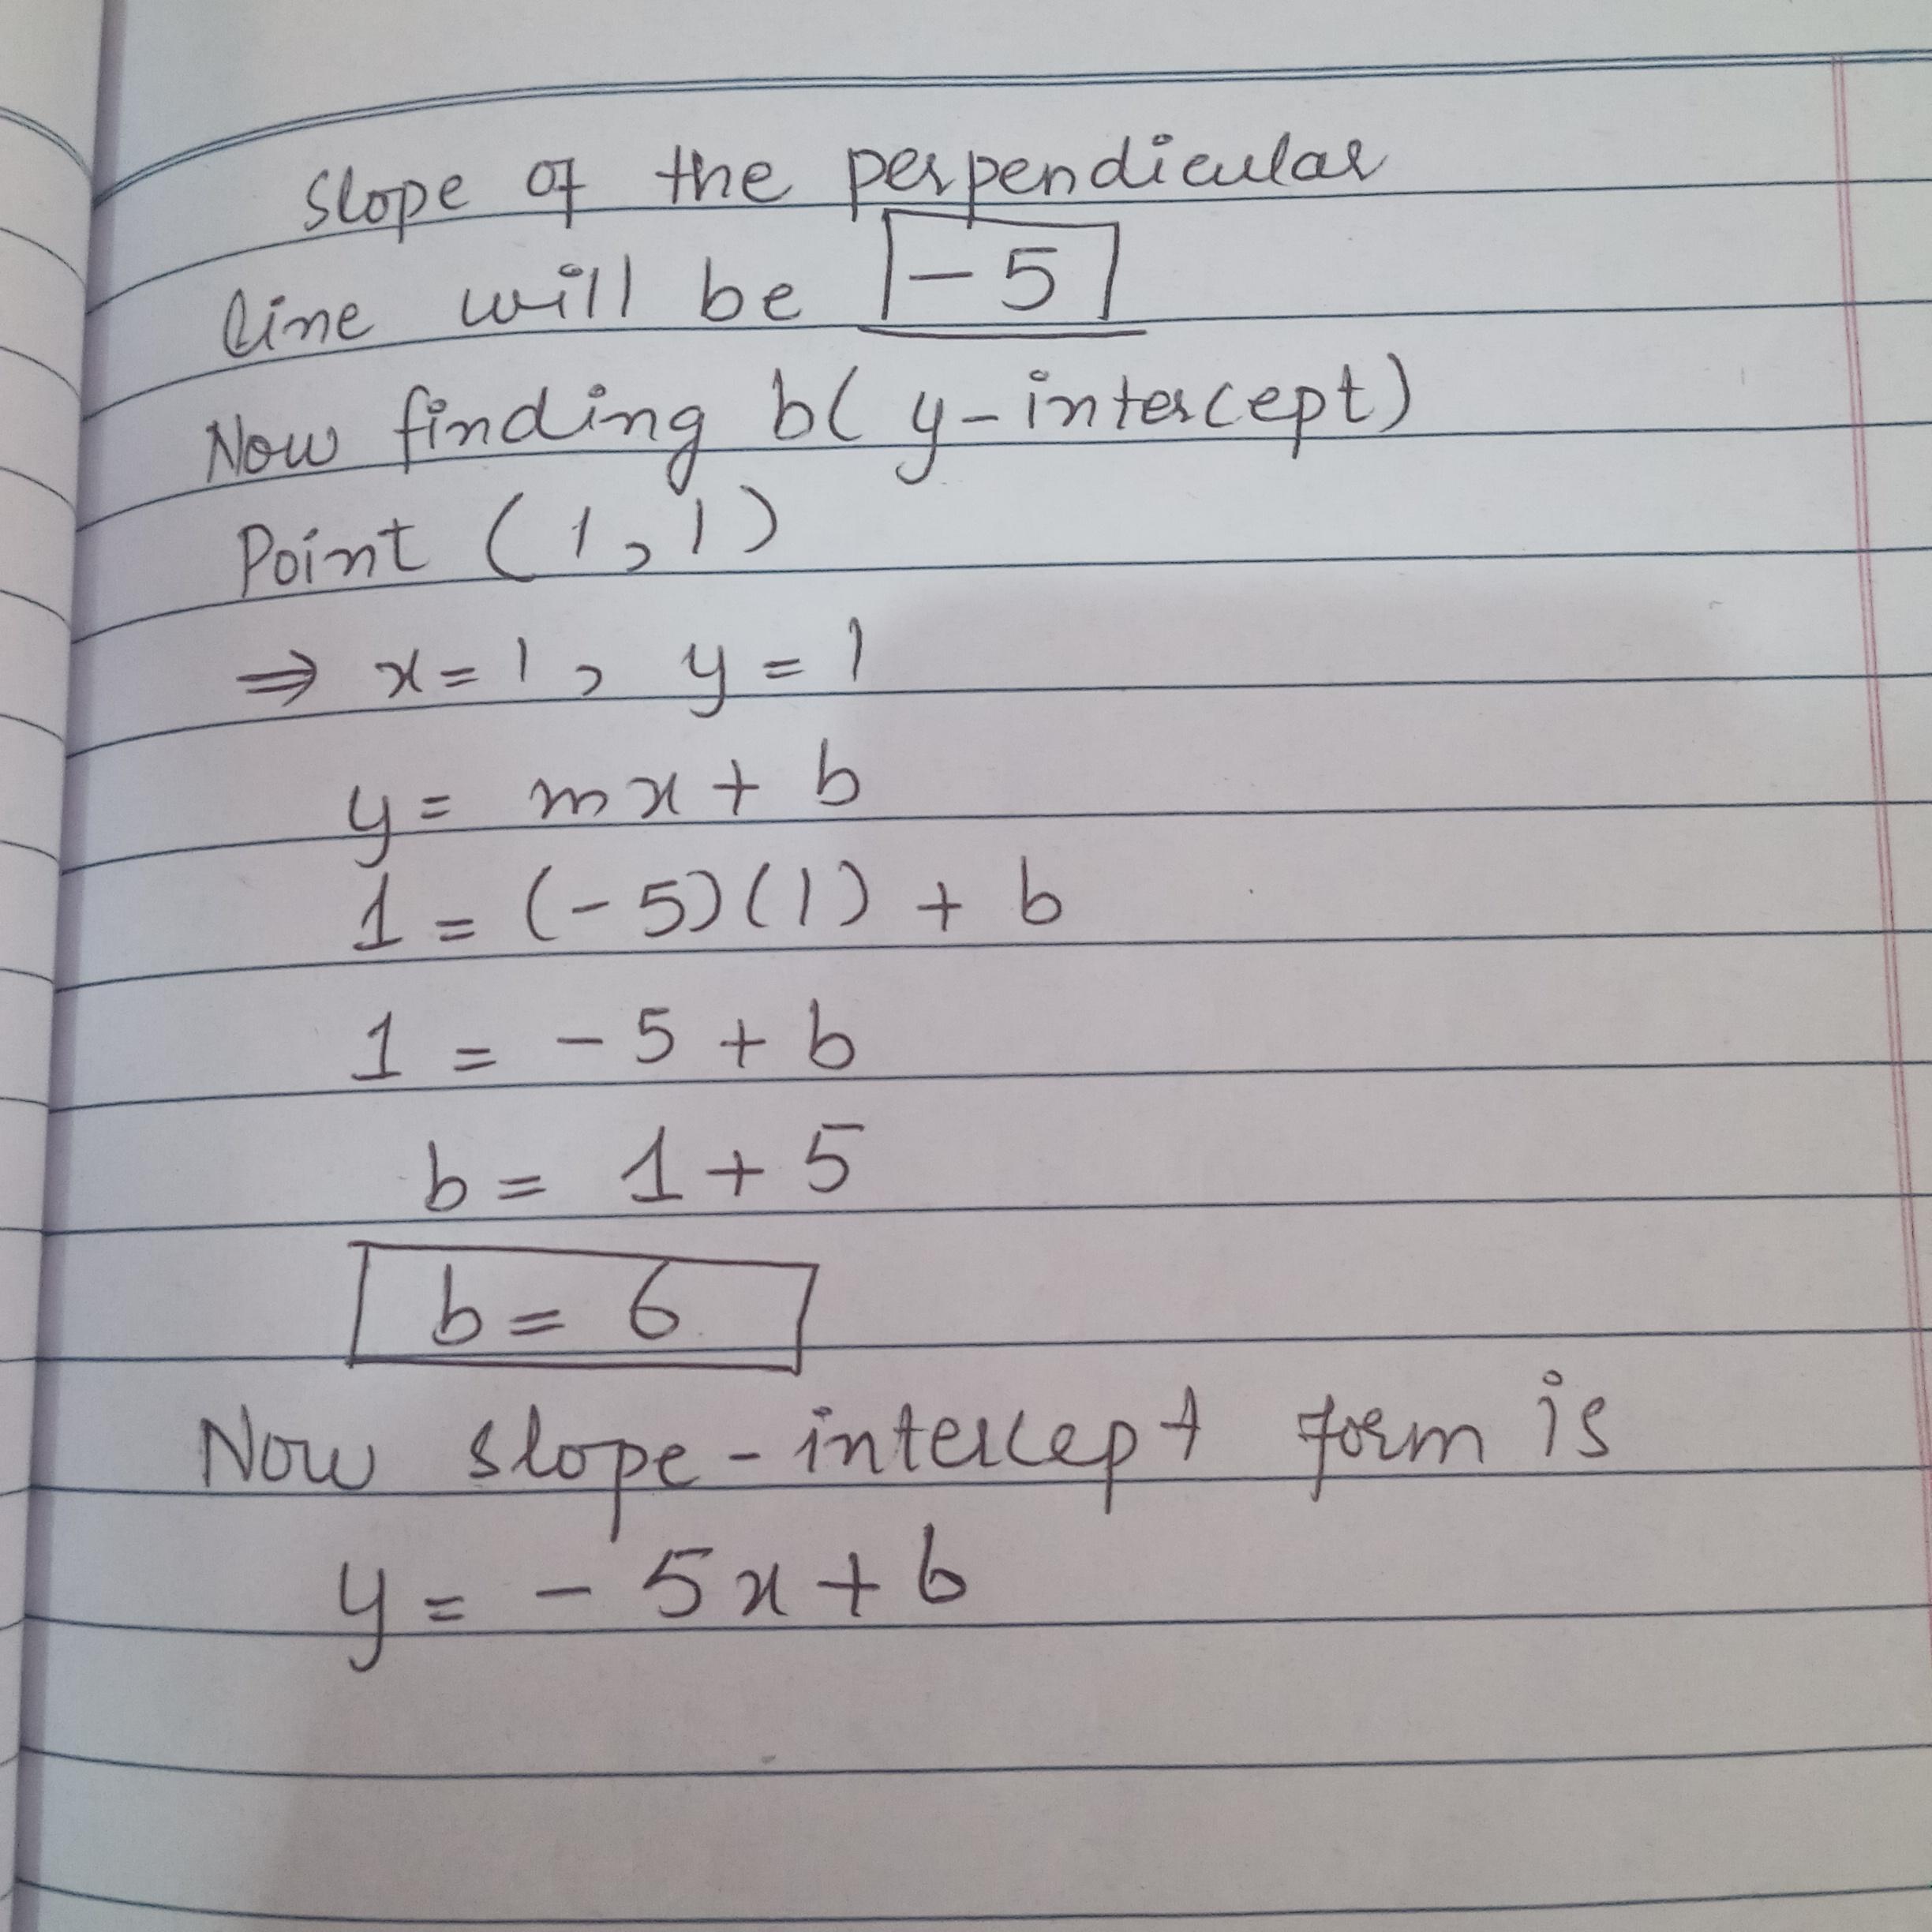 Slope of the perpendicular
line will be -5
Now finding b( y-intercept)
Point (1,1)
⇒ x=1, y=1
y= mx+b
1=(-5)(1)+b
1 = -5+b
b= 1+5
b= 6
Now slope-intercept form is
y= -5x+6